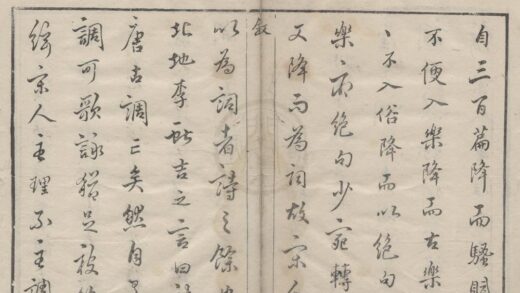 自三百篇降而騷賦
不便入樂降而古樂
、不入俗降而以絶句
樂府絶句少宛轉
又降而為詞故宋人
叙
以為詞者詩之餘也
北地李獻吉之言曰詩
唐古調亡矣然自有
調可歌詠猶足被管
絃宋人主理不主調